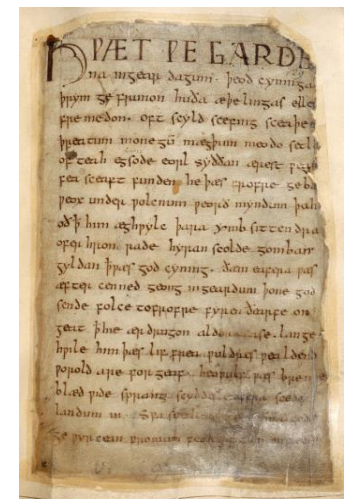 HǷÆT ǷE GARDE
na ingear dagum · þeod cyninga
þrym ge frunon huða æþelingas elle
fre medon · oft scyld scefing sceaþe
þreatum monegū mægþum meodo setla
of teah egsode eorl syððan ærest ƿear
fea sceaft funden he þæs frofre geba
ƿeox under ƿolcnum ƿeorð myndum þah
oð þ him æghƿylc þara ymb sittendra
ofer hron rade hyran scolde gomban
gyldan þæt ƿæs god cyning · ðæm eafera ƿæs
æfter cenned geong ingeardum þone god
sende folce tofrofre fyren ðearfe on
geat þ hie ær drugon aldor ase · lange
hƿile him þæs lif frea ƿuldres ƿealdend
ƿorold are forgeaf · beoƿulf ƿæs breme
blæd ƿide sprang scyldes eafera scede
landum in · sƿa sceal
ge ƿyrcean fromum feoh